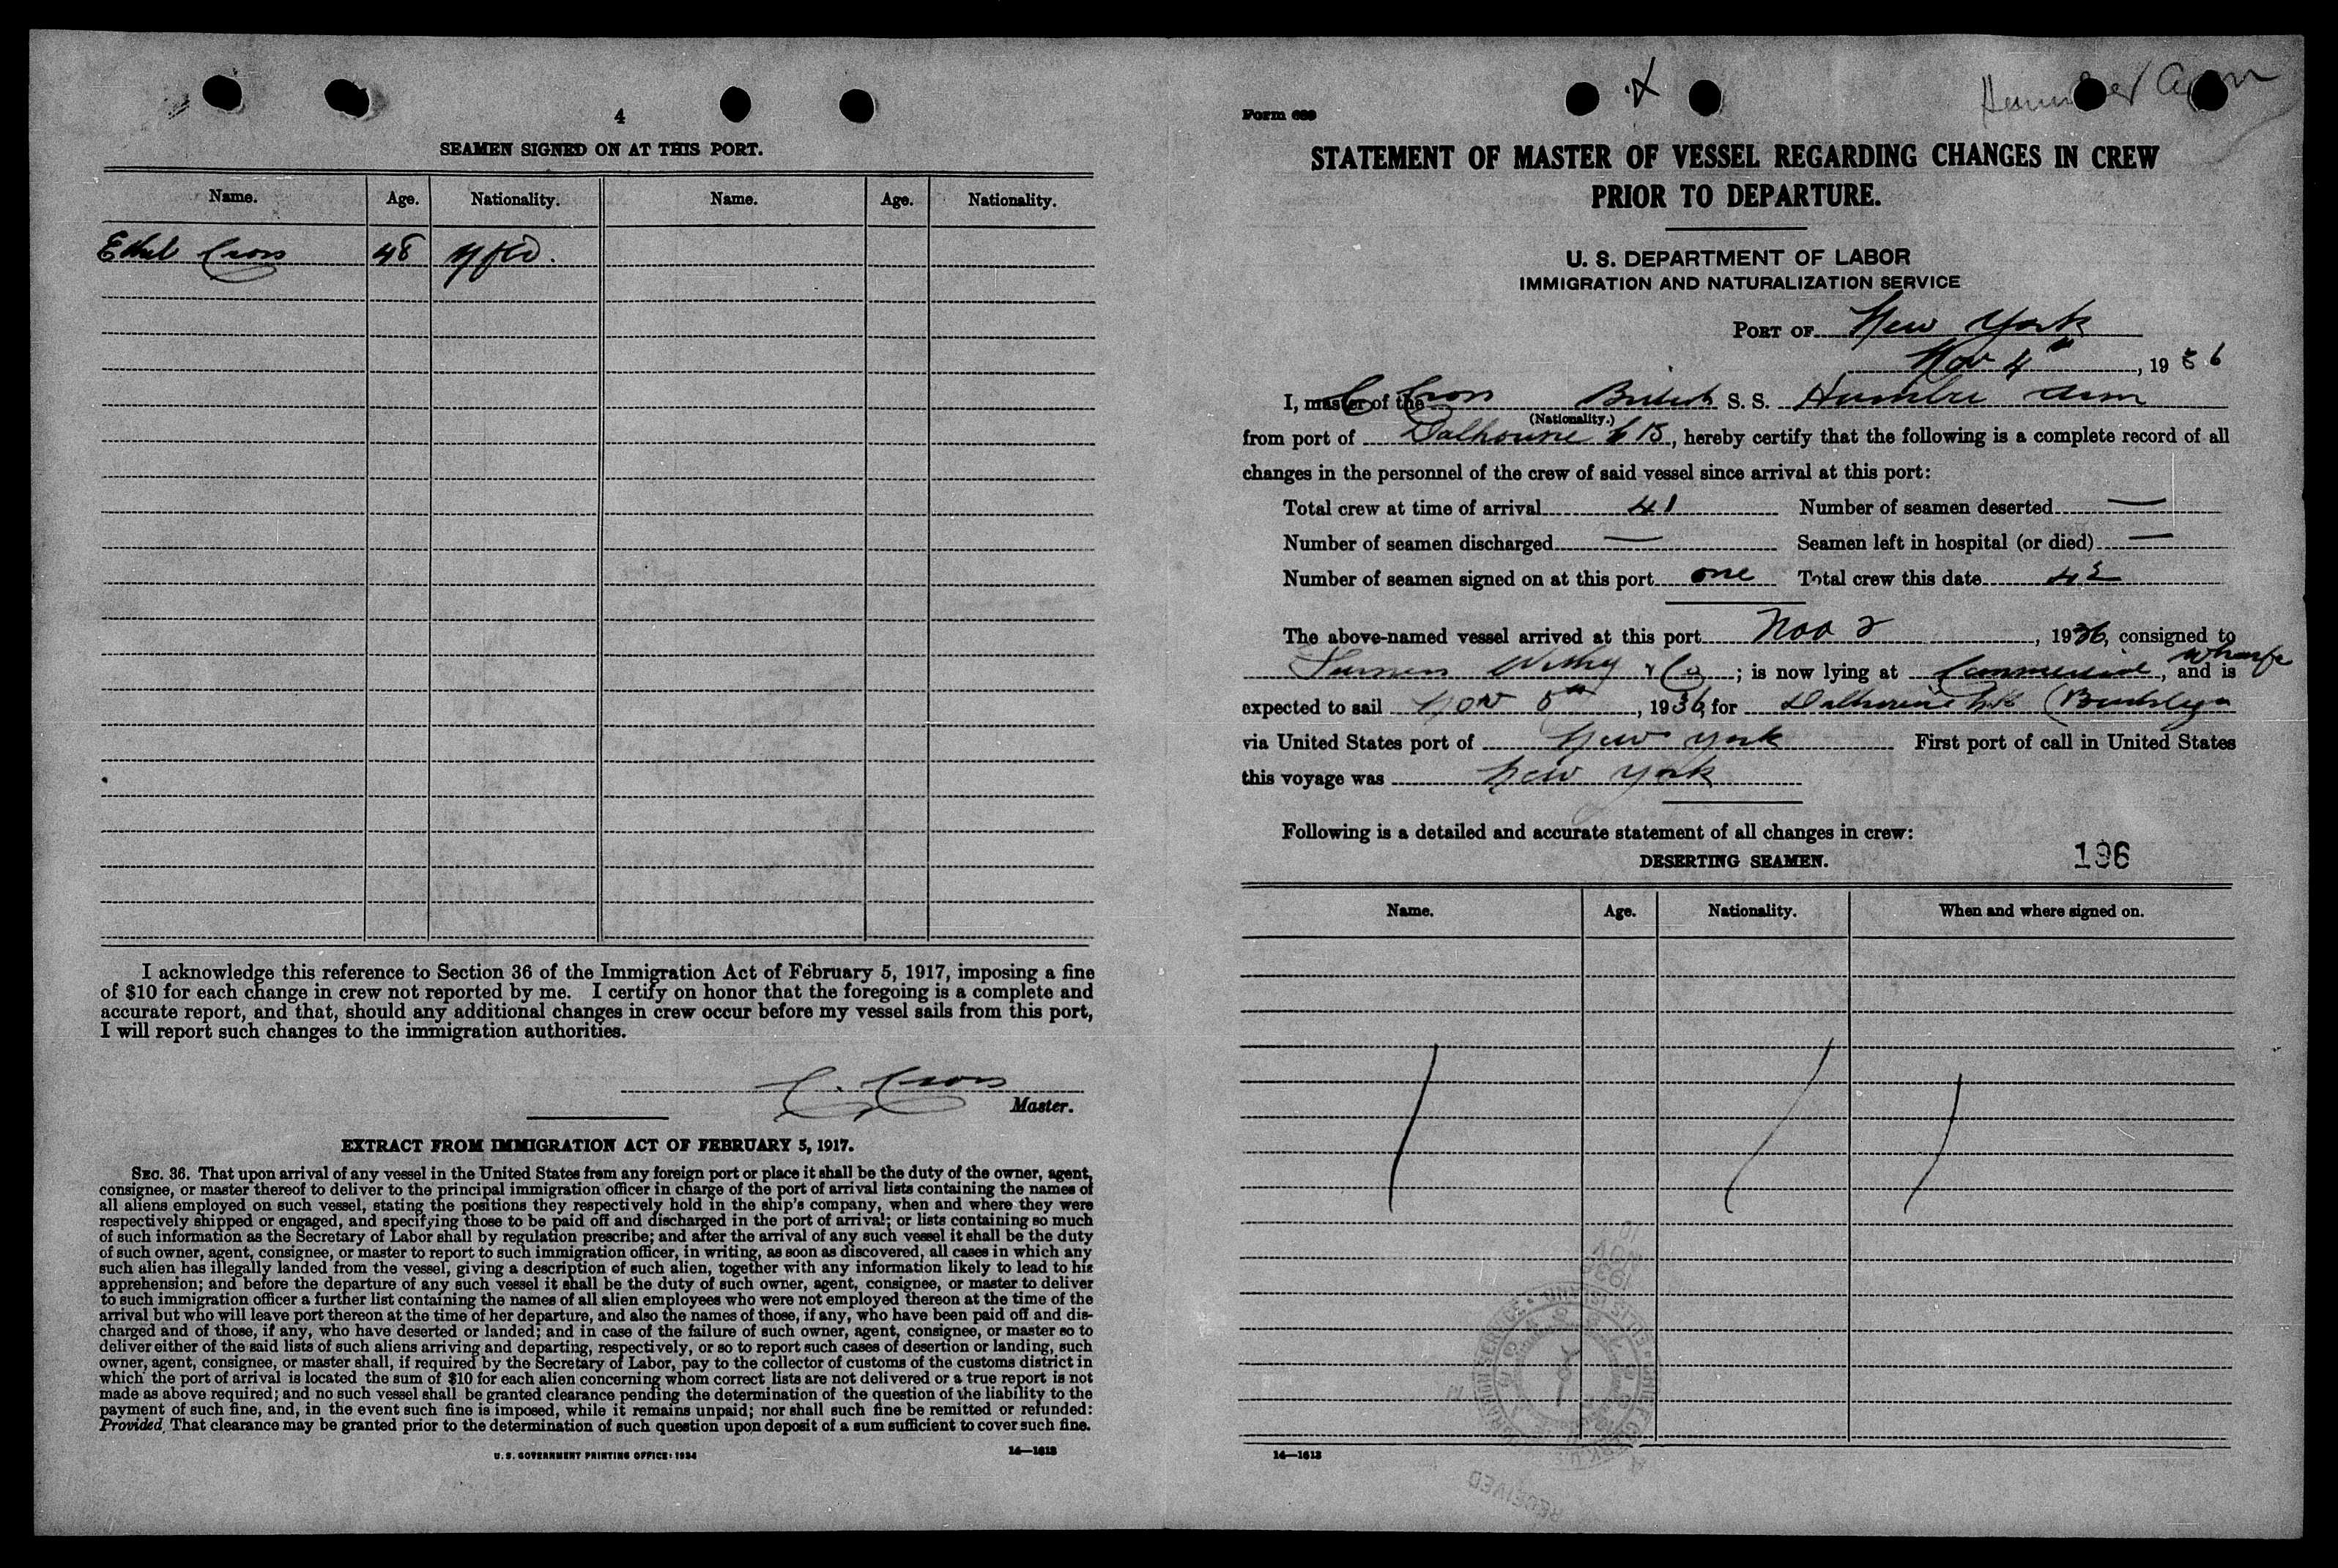 4
SEAMEN SIGNED ON AT THIS PORT.
Name. Age. Nationality. Name. Age. Nationality.
Ethel Cross 48 Nfld.
I acknowledge this reference to Section 36 of the Immigration Act of February 5, 1917, imposing a fine
of $10 for each change in crew not reported by me. I certify on honor that the foregoing is a complete and
accurate report, and that, should any additional changes in crew occur before my vessel sails from this port,
I will report such changes to the immigration authorities.
C. Cross
Master.
EXTRACT FROM IMMIGRATION ACT OF FEBRUARY 5, 1917.
SEC. 36. That upon arrival of any vessel in the United States from any foreign port or place it shall be the duty of the owner, agent,
consignee, or master thereof to deliver to the principal immigration officer in charge of the port of arrival lists containing the names of
all aliens employed on such vessel, stating the positions they respectively hold in the ship's company, when and where they were
respectively shipped or engaged, and specifying those to be paid off and discharged in the port of arrival; or lists containing so much
of such information as the Secretary of Labor shall by regulation prescribe; and after the arrival of any such vessel it shall be the duty
of such owner, agent, consignee, or master to report to such immigration officer, in writing, as soon as discovered, all cases in which any
such alien has illegally landed from the vessel, giving a description of such alien, together with any information likely to lead to his
apprehension; and before the departure of any such vessel it shall be the duty of such owner, agent, consignee, or master to deliver
to such immigration officer a further list containing the names of all alien employees who were not employed thereon at the time of the
arrival but who will leave port thereon at the time of her departure, and also the names of those, if any, who have been paid off and dis-
charged and of those, if any, who have deserted or landed; and in case of the failure of such owner, agent, consignee, or master so to
deliver either of the said lists of such aliens arriving and departing, respectively, or so to report such cases of desertion or landing, such
owner, agent, consignee, or master shall, if required by the Secretary of Labor, pay to the collector of customs of the customs district in
which the port of arrival is located the sum of $10 for each alien concerning whom correct lists are not delivered or a true report is not
made as above required; and no such vessel shall be granted clearance pending the determination of the question of the liability to the
payment of such fine, and, in the event such fine is imposed, while it remains unpaid; nor shall such fine be remitted or refunded:
Provided, That clearance may be granted prior to the determination of such question upon deposit of a sum sufficient to cover such fine.
U. S. GOVERNMENT PRINTING OFFICE: 1934 14—1613
Humber Arm
Form 689
STATEMENT OF MASTER OF VESSEL REGARDING CHANGES IN CREW
PRIOR TO DEPARTURE.
U. S. DEPARTMENT OF LABOR
IMMIGRATION AND NATURALIZATION SERVICE
PORT OF New York
Nov 4th, 1936
I, master of the C Cross British S. S. Humber Arm
(Nationality.)
from port of Dalhousie NB, hereby certify that the following is a complete record of all
changes in the personnel of the crew of said vessel since arrival at this port:
Total crew at time of arrival 41 Number of seamen deserted —
Number of seamen discharged — Seamen left in hospital (or died) —
Number of seamen signed on at this port one Total crew this date 42
The above-named vessel arrived at this port Nov 2, 1936, consigned to
Furness Withy & Co; is now lying at Commercial Wharfe, and is
expected to sail Nov 5th, 1936, for Dalhousie NB
via United States port of New York First port of call in United States
this voyage was New York
Following is a detailed and accurate statement of all changes in crew:
DESERTING SEAMEN. 196
Name. Age. Nationality. When and where signed on.
10
NOV
1936
RECEIVED
14—1613